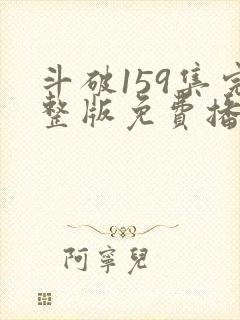 斗破159集完
整版免費播
阿寧兒